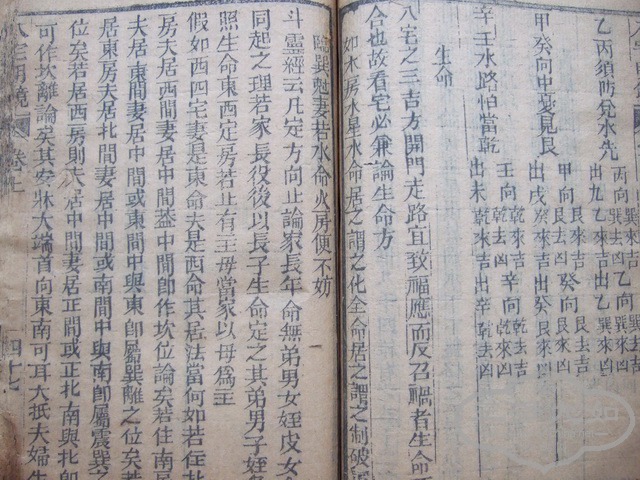 乙丙須防兌水先
丙向 巽來吉 巽去凶
出九 乙向 乾去吉 巽來凶
甲癸向中憂見艮
甲向 艮來凶 艮去吉
出戌 乾來吉 出癸 艮來凶
辛壬水路怕當乾
壬向 乾來吉 乾去凶
辛向 乾去吉 乾來凶
出未 出辛
生命
八宅之三吉方開門走路宜致福應而反召禍者生命
合也故看宅必兼論生命方
如木房水星水命居之謂之化全命居之謂之制破
臨巽剋妻若水命火房便不妨
斗靈經云凡定方向止論家長年命無弟男女姪皮女
同起之理若家長役後以長子生命定之其弟男子姪
照生命東西定房若止有王母當家以母為王
假如西四宅妻是東命夫是西命其居法當何如若住
房夫居西間妻居中間蓋中間卽作坎位論矣若住南
夫居東間妻居中間或東間中與東卽屬巽離之位矣
居東房夫居北間妻居中間或南間中與南卽屬震巽之
若居西房則夫居中間妻居正間或正北南與北卽
可作坎離論矣其安牀大端首向東南可耳大抵夫婦
八宅明鏡 卷上 四十七